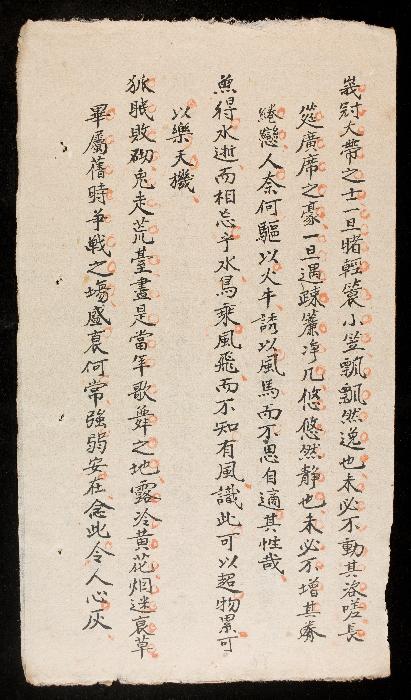 峩冠大帶之士一旦睹輕簑小笠飄飄然逸也未必不動其咨嗟長
筵廣席之豪一旦遇疎簾凈几悠悠然靜也未必不增其綣
綣戀人奈何驅以火牛誘以風馬而不思自適其性哉
魚得水逝而相忘乎水鳥乘風飛而不知有風識此可以超物累可
以樂天機
狐眠敗砌兎走荒臺盡是當年歌舞之地露冷黃花烟迷衰草
畢屬舊時爭戰之塲盛衰何常強弱安在念此令人心灰